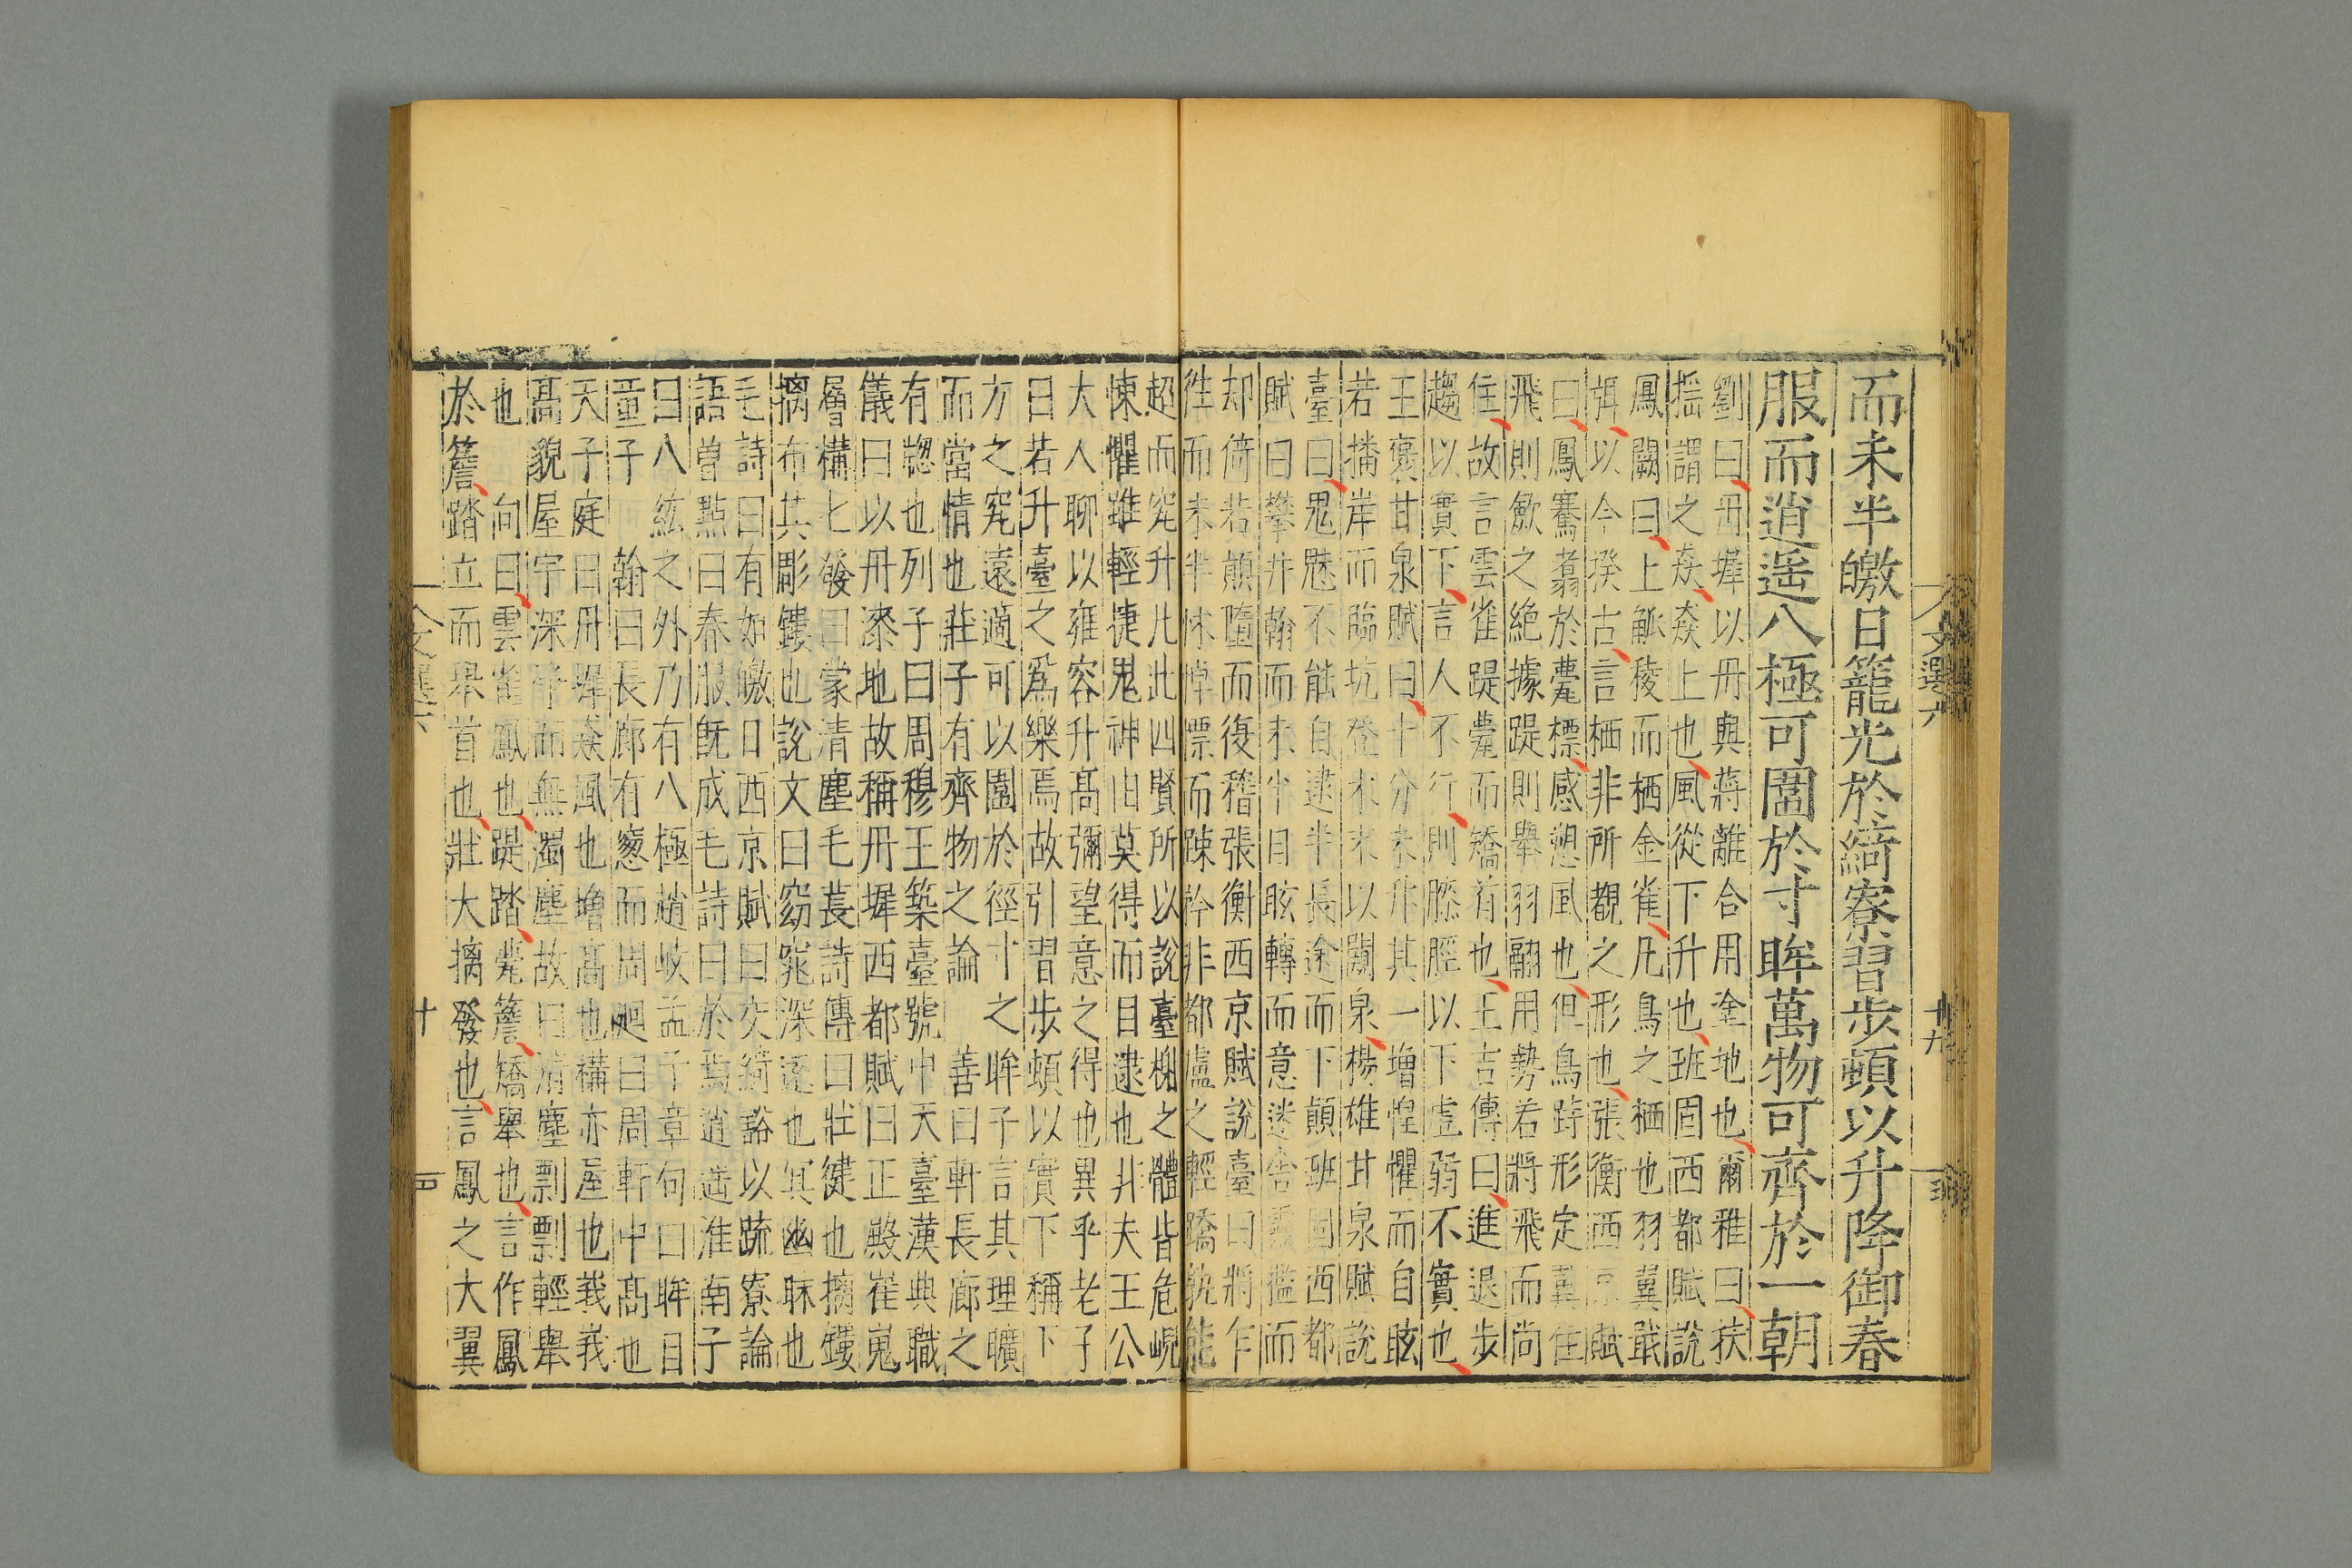 而未半皦日籠光於綺寮習步頓以升降御春
服而逍遥八極可圍於寸眸萬物可齊於一朝
劉曰丹墀以丹與蔣離合用塗地也爾雅曰扶
揺謂之猋猋上也風從下升也班固西都賦說
鳳闕曰上觚稜而栖金雀凡鳥之栖也羽翼戢
弭以今揆古言栖非所覩之形也張衡西京賦
曰鳳騫翥於甍標感愬風也但鳥跱形定翼住
飛則歛之絶據踶則舉羽翮用勢若將飛而尚
住故言雲雀踶甍而矯首也王吉傳曰進退步
趨以實下言人不行則膝脛以下虚弱不實也
王襃甘泉賦曰十分未升其一增惶懼而自眩
若播岸而臨坑登木末以闚泉楊雄甘泉賦說
臺曰鬼魅不能自逮半長途而下顛班固西都
賦曰攀井翰而未半目眩轉而意迷舍櫺檻而
却倚若顛墮而復稽張衡西京賦說臺曰將乍
徃而未半怵悼慄而踈矜非都盧之輕蹻孰能
超而究升凡此四賢所以說臺榭之體皆危峴
悚懼雖輕捷鬼神由莫得而目逮也非夫王公
大人聊以雍容升髙彌望意之得也異乎老子
曰若升臺之爲樂焉故引習步頓以實下稱下
方之究遠適可以圍於徑寸之眸子言其理曠
而當情也莊子有齊物之論 善曰軒長廊之
有窻也列子曰周穆王築臺號中天臺漢典職
儀曰以丹漆地故稱丹墀西都賦曰正殿崔嵬
層構七發曰蒙清塵毛萇詩傳曰壯健也摛鏤
摛布其彫鏤也說文曰窈窕深逺也冥幽眛也
毛詩曰有如皦日西京賦曰交綺豁以疏寮論
語曽點曰春服旣成毛詩曰於焉逍遥淮南子
曰八紘之外乃有八極趙岐孟子章句曰眸目
童子 翰曰長廊有窻而周廻曰周軒中髙也
天子庭曰丹墀猋風也增髙也構亦屋也峩峩
髙貌屋宇深净而無濁塵故曰清塵剽剽輕舉
也 向曰雲雀鳳也踶踏甍簷矯舉也言作鳳
於簷踏立而舉首也壯大摛發也言鳳之大翼